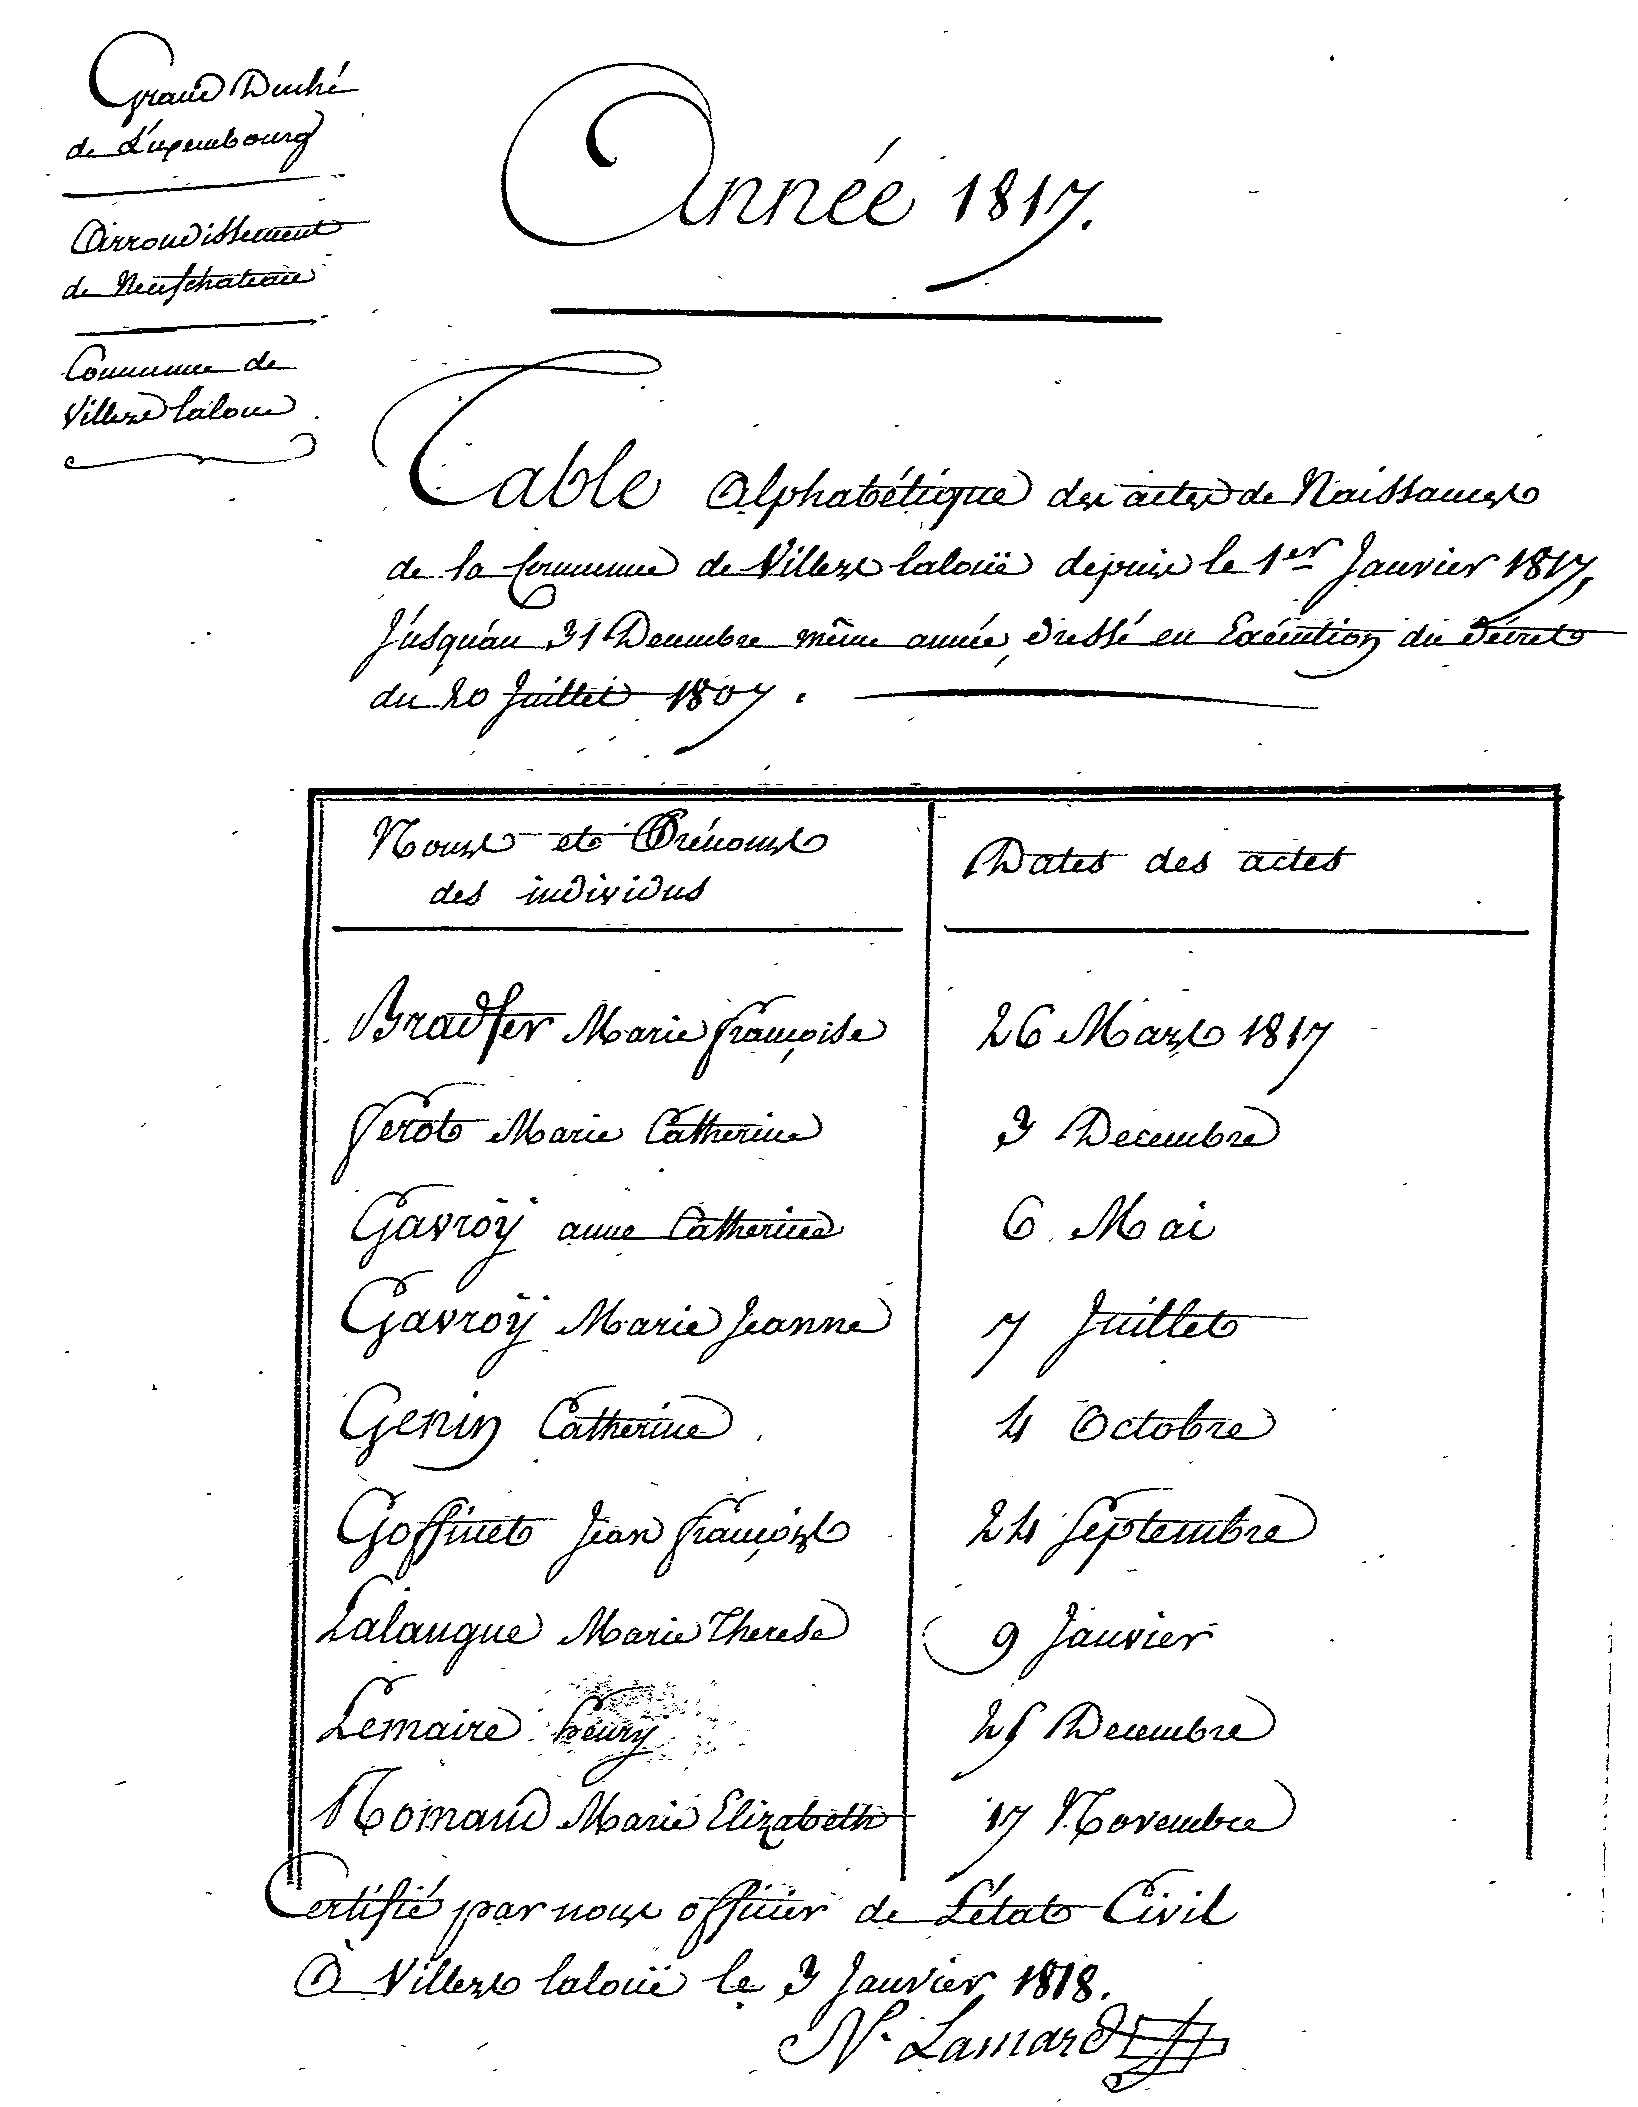 Grand Duché
de Luxembourg
Arrondissement
de Neufchateau
Commune de
Villers laloue
Année 1817.
Table Alphabétique des actes de Naissances
de la Commune de Villers laloüe depuis le 1er Janvier 1817,
Jusquau 31 Decembre même année, dressé en Exécution du Décret
du 20 Juillet 1807.
Noms et Prénoms
des individus
Dates des actes
Bradfer Marie françoise 26 Mars 1817
ferot Marie Catherine 3 Decembre
Gavroÿ anne Catherine 6 Mai
Gavroÿ Marie Jeanne 7 Juillet
Genin Catherine 4 Octobre
Goffinet Jean françois 24 Septembre
Lalangue Marie Therese 9 Janvier
Lemaire henry 25 Decembre
Noinaud Marie Elizabeth 17 Novembre
Certifié par nous officier de L'état Civil
À Villers laloüe le 3 Janvier 1818.
N. Lamard